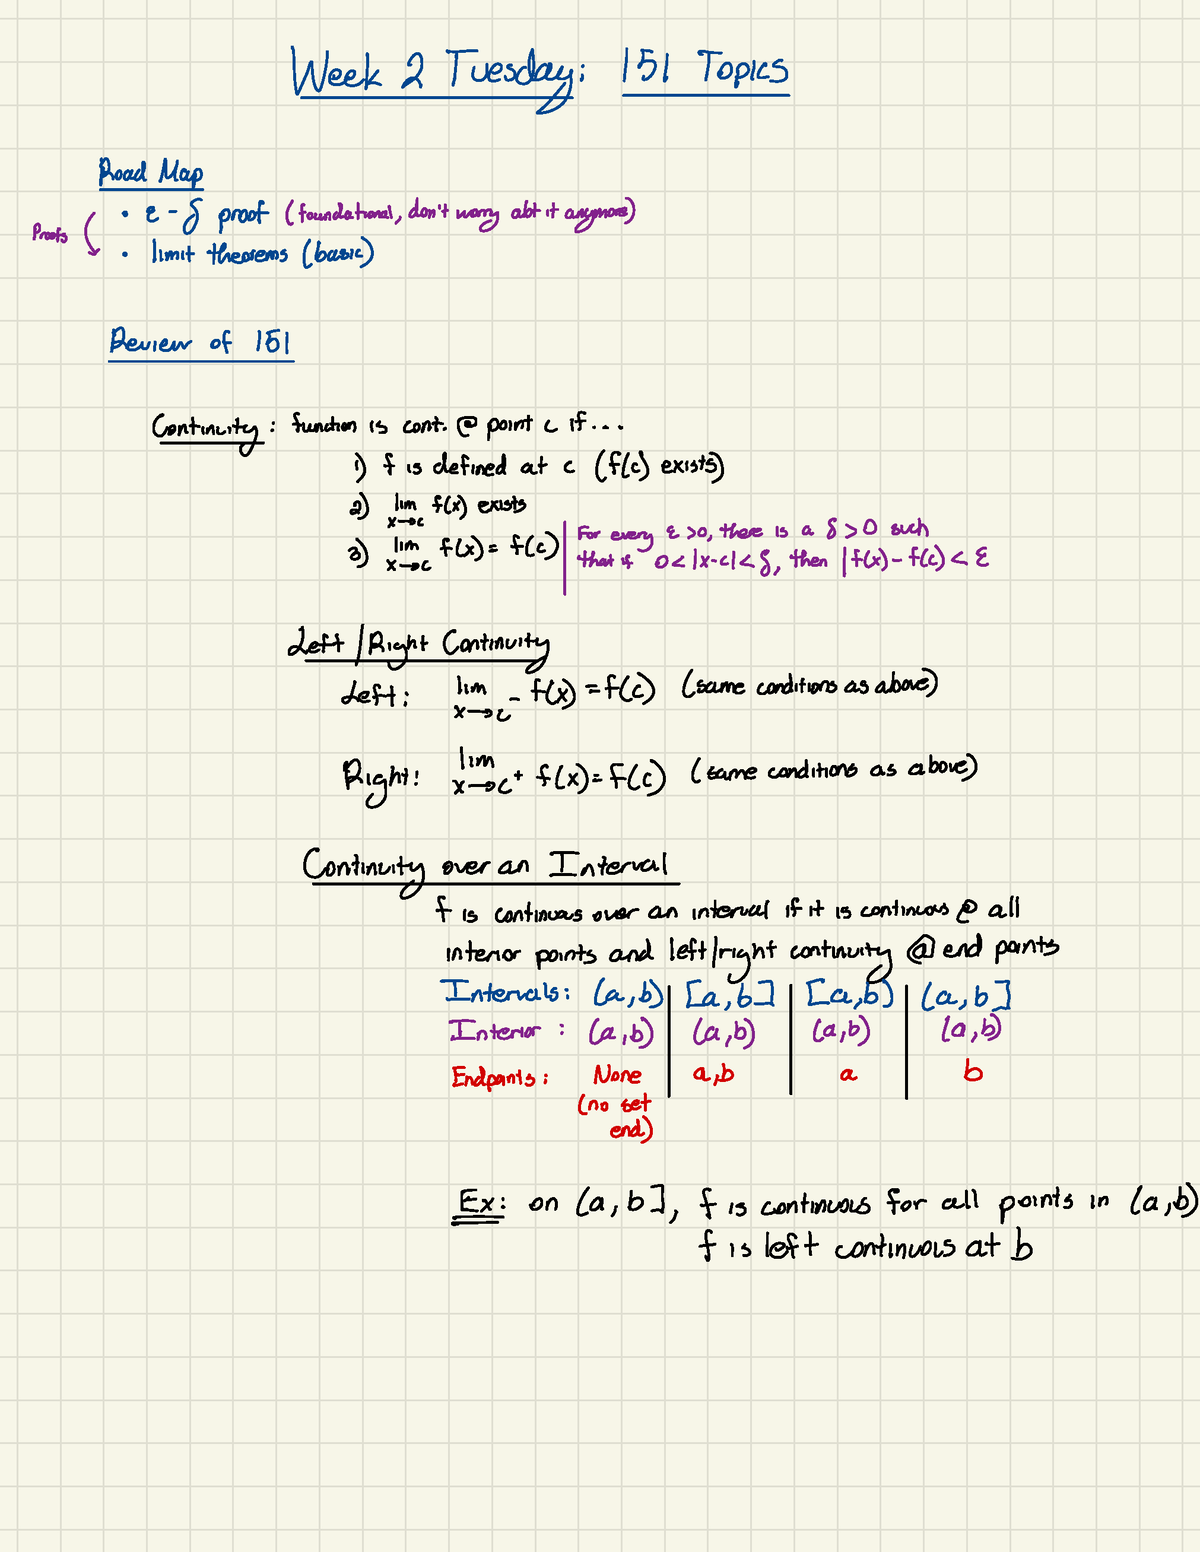 Week 2 Tuesday: 151 Topics
Road Map
• ε - δ proof (foundational, don't worry abt it anymore)
Proofs
• limit theorems (basic)
Review of 151
Continuity: function is cont. @ point c if...
1) f is defined at c (f(c) exists)
2) lim x→c f(x) exists
3) lim x→c f(x) = f(c)
For every ε >0, there is a δ > 0 such
that if 0 < |x-c| < δ, then |f(x) - f(c) < ε
Left/Right Continuity
Left: lim x→c⁻ f(x) = f(c) (same conditions as above)
Right: lim x→c⁺ f(x) = f(c) (same conditions as above)
Continuity over an Interval
f is continuous over an interval if it is continuous @ all
interior points and left/right continuity @ end points
Intervals: (a,b) | [a,b] | [a,b) | (a,b]
Interior: (a,b) | (a,b) | (a,b) | (a,b)
Endpoints: None | a,b | a | b
(no set
end)
Ex: on (a,b], f is continuous for all points in (a,b)
f is left continuous at b